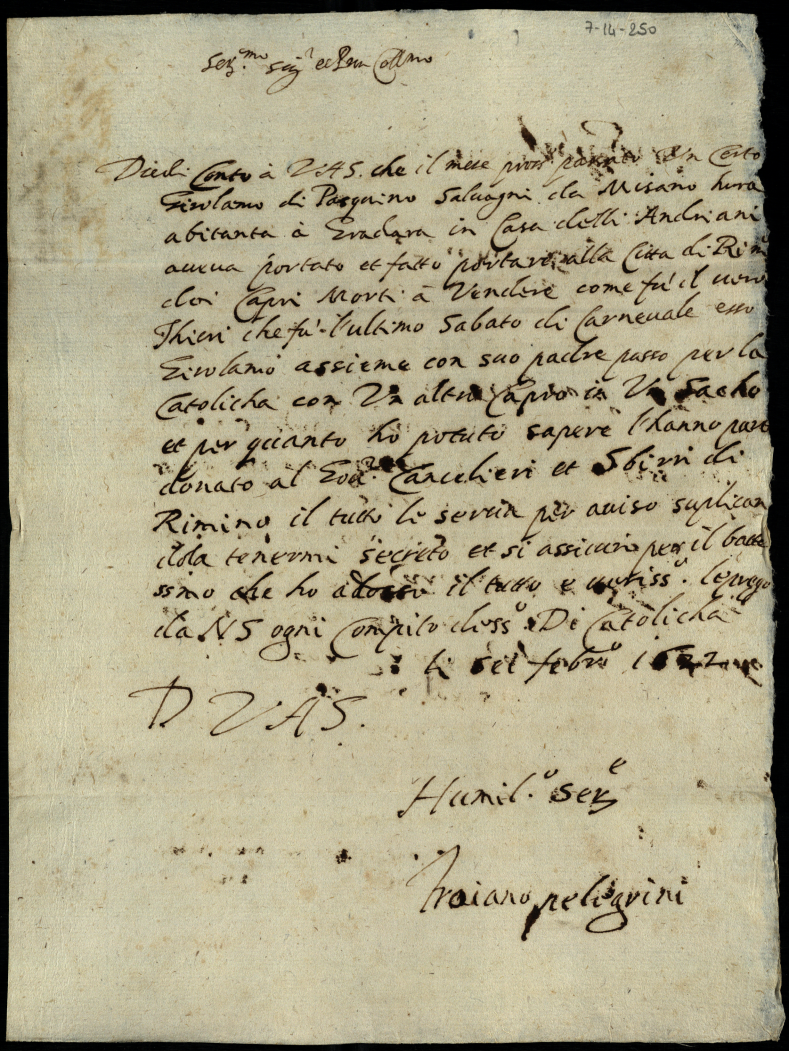 7-14-250
Ser.mo Sig.r et Prn Coll.mo
Diedi Conto à V.A.S. che il mese pross passato Un Certo
Girolamo di Pasquino Saluagni da Misano hora
abitante à Gradara in Casa delli Andriani
aueua portato et fatto portare alla Citta di Rim
doi Capri Morti à Vendere come fu il uero
Ihieri che fu l'ultimo Sabato di Carneuale esso
Girolamo assieme con suo padre passo per la
Catolicha con Un altro Capro in Un Sacho
et per quanto ho potuto sapere l'hanno
donato al Cancelieri et Sbirri di
Rimino il tutto le serua per auiso suplican
dola tenermi secreto et si assicuri per il batte
ssmo che ho adosso il tutto e ueriss.o le prego
da NS ogni Compito dess.o Di Catolicha
li sei febr.o
D V.A.S.
Humil.o Ser.e
Troiano pelegrini